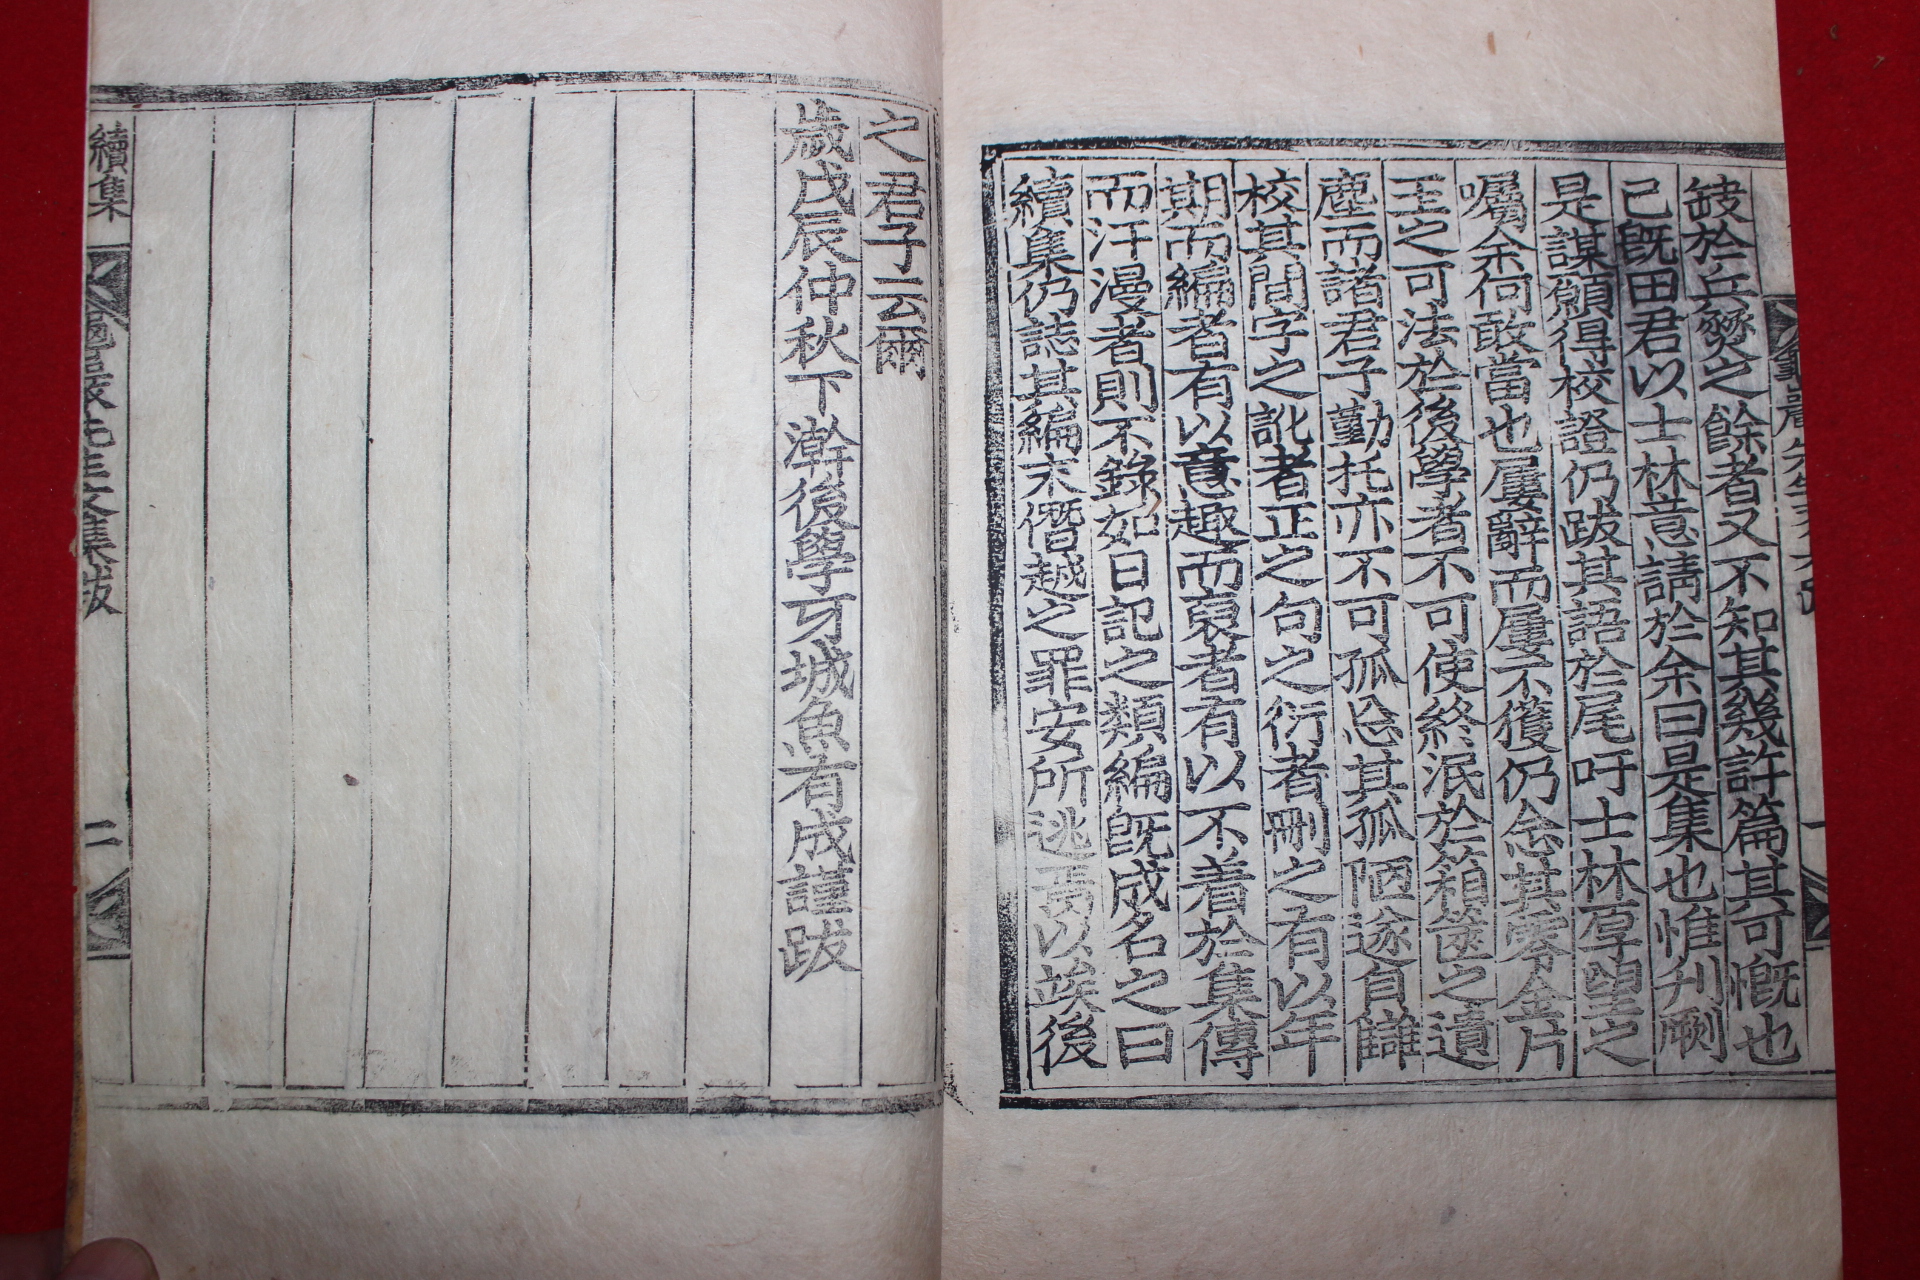 缺於兵燹之餘者又不知其幾許篇其可慨也
已旣田君以士林意請於余曰是集也惟刋劂
是謀願得校證仍跋其語於尾吁士林厚望之
囑余何敢當也屢辭而屢不獲仍念其零金片
玉之可法於後學者不可使終泯於箱篋之遺
塵而諸君子勤托亦不可孤忩其孤陋遂自讎
校其間字之訛者正之句之衍者刪之有以年
期而編者有以意趣而裒者有以不着於集傳
而汗漫者則不錄如日記之類編旣成名之曰
續集仍誌其編末僭越之罪安所逃焉以竢後
之君子云爾
歲戊辰仲秋下澣後學牙城魚有成謹跋
續集
文集跋
二